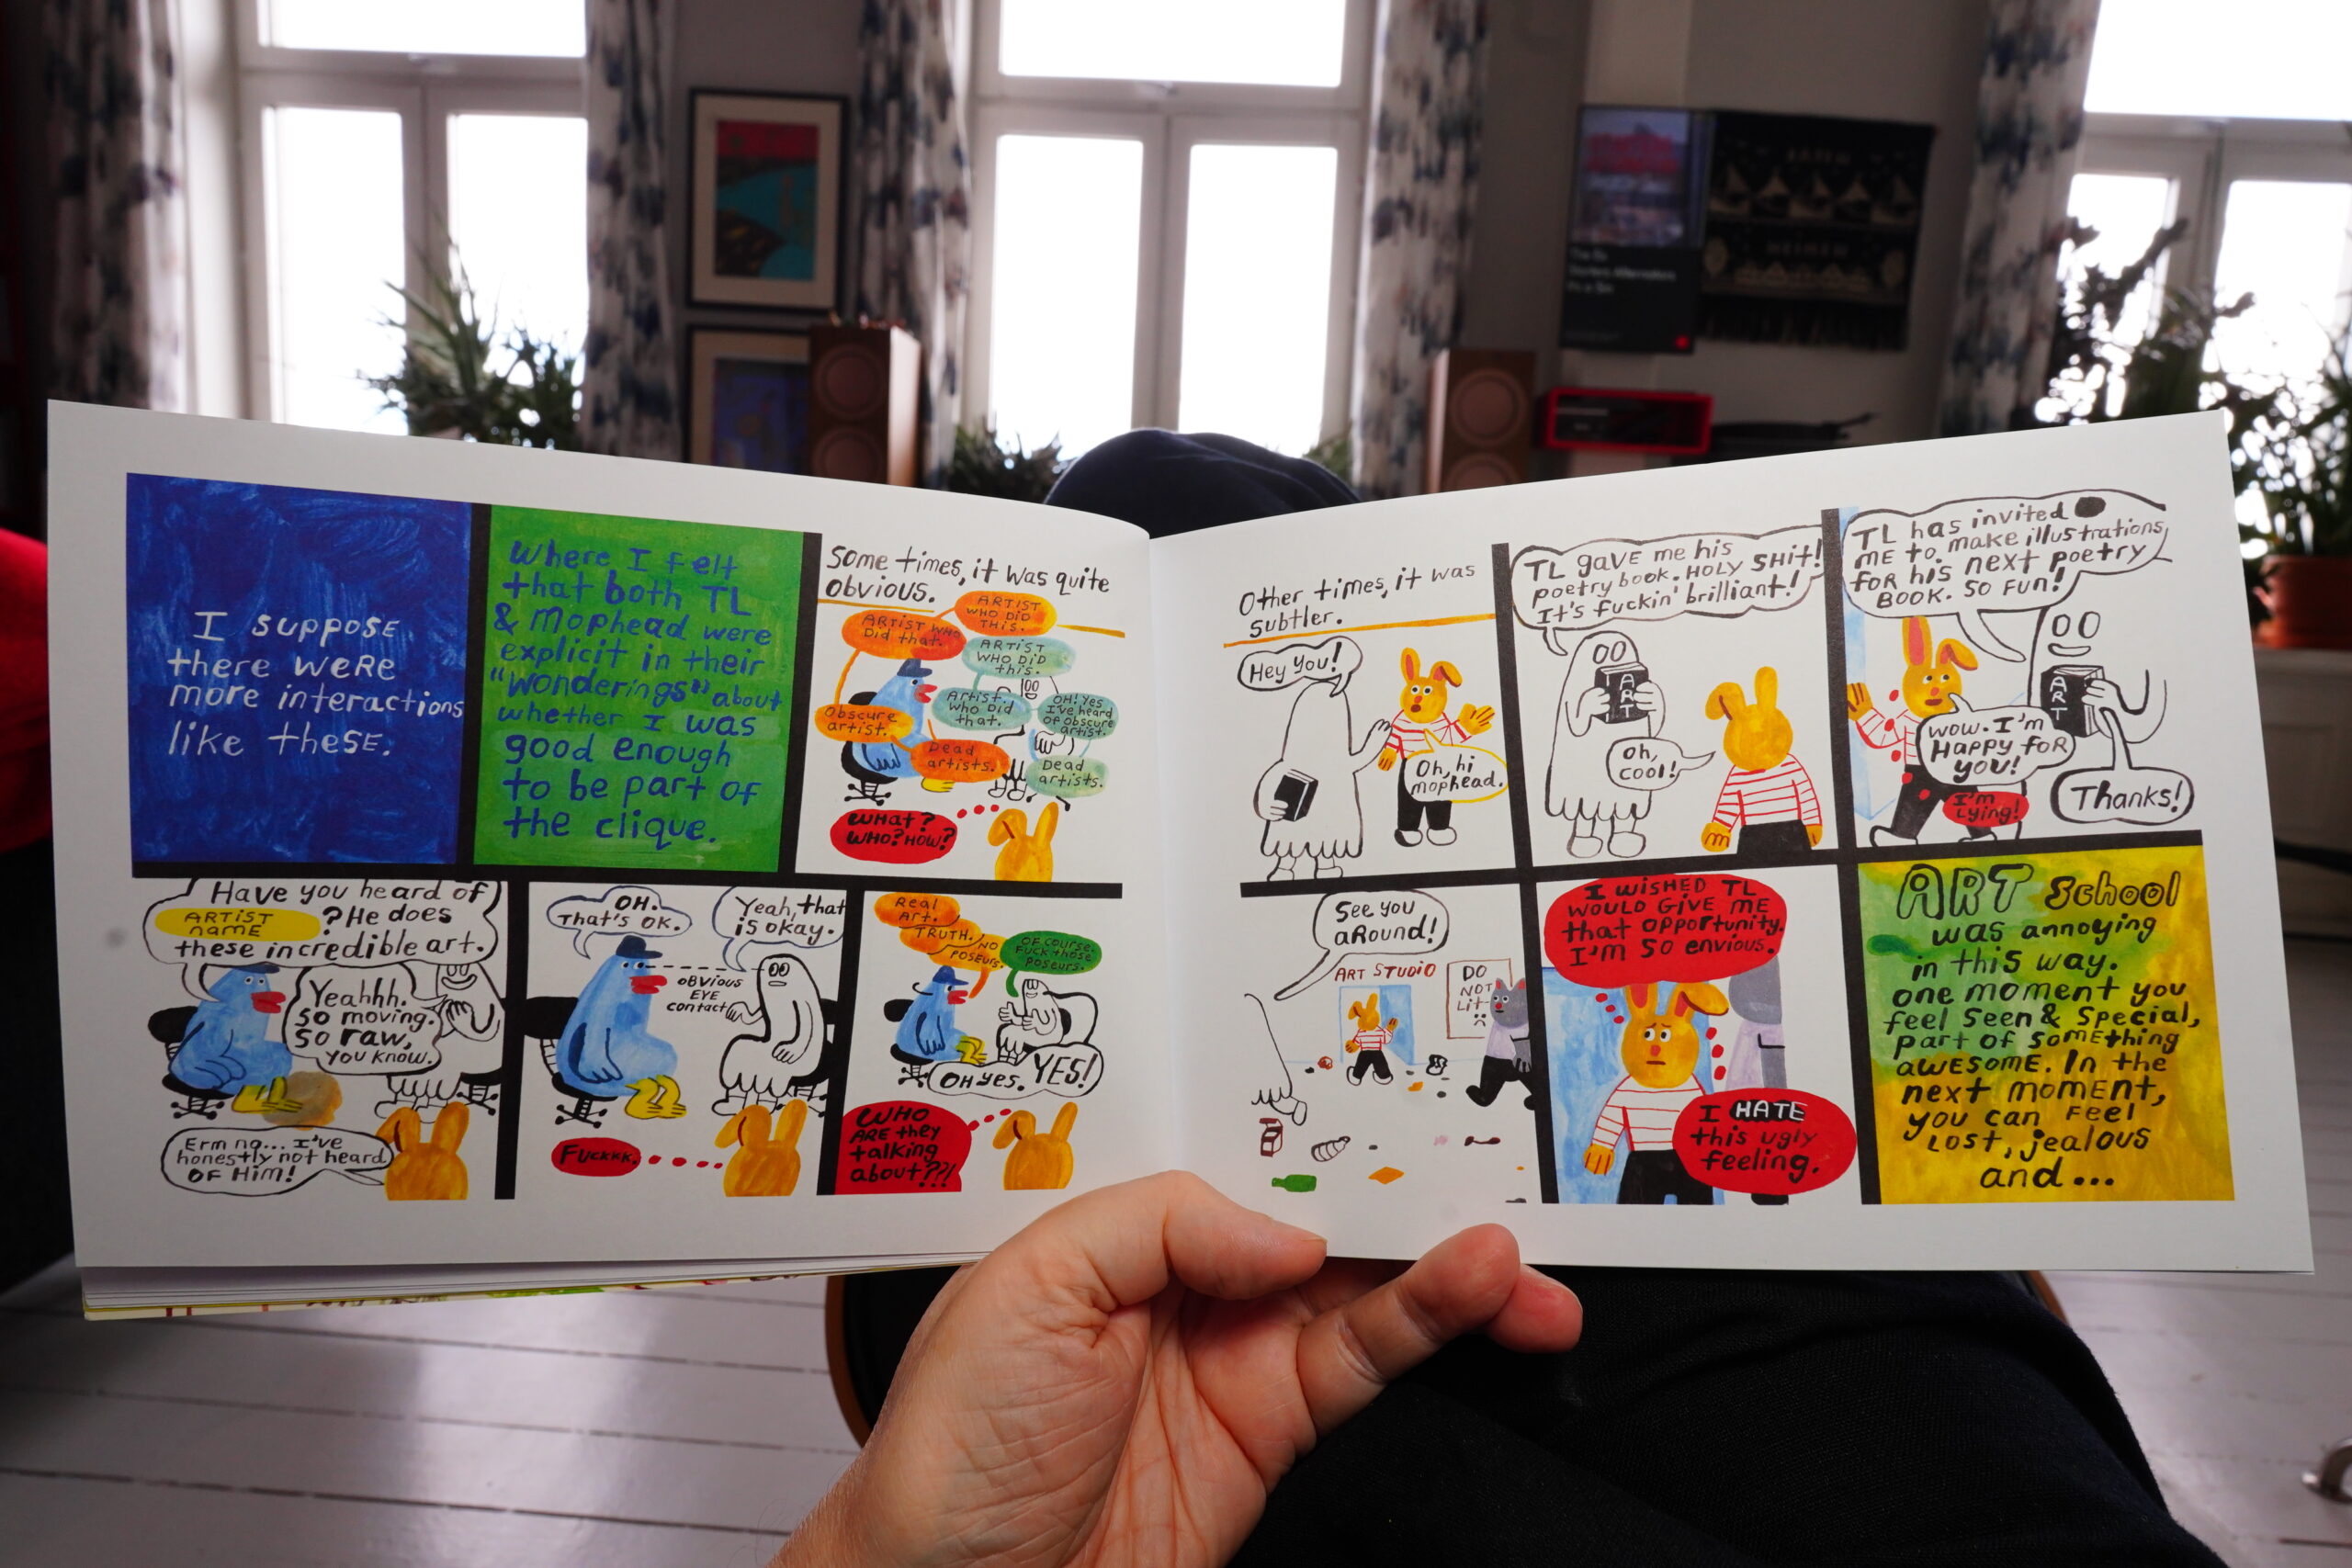 I suppose
there were
more interactions
like these.
Where I felt
that both TL
& Mophead were
explicit in their
"wonderings" about
whether I was
good enough
to be part of
the clique.
Some times, it was quite
obvious.
ARTIST
WHO DID
THIS.
ARTIST WHO
Did that.
ARTIST
WHO DID
this.
Artist
who Did
that.
OH! Yes
I've heard
of obscure
artist.
Obscure
artist.
Dead
artists.
Dead
artists.
WHAT?
WHO? HOW?
Have you heard of
ARTIST
name
? He does
these incredible art.
Yeahhh.
So moving.
So raw,
you know.
Erm no... I've
honestly not heard
of Him!
OH.
That's OK.
Yeah, that
is okay.
OBVIOUS
EYE
contact
Fuckkk.
Real
Art.
TRUTH.
NO
POSEURS.
OF course.
Fuck those
poseurs.
OH yes. YES!
WHO
ARE they
talking
about??!
Other times, it was
subtler.
Hey you!
Oh, hi
mophead.
TL gave me his
poetry book. HOLY SHIT!
It's fuckin' brilliant!
ART
Oh,
cool!
TL has invited
ME to make illustrations
for his next poetry
BOOK. SO FUN!
ART
Wow. I'm
Happy for
you!
I'm
lying!
Thanks!
See you
around!
ART STUDIO
DO
NOT
Lit
I WISHED TL
WOULD GIVE ME
that opportunity.
I'm so envious.
I HATE
this ugly
feeling.
ART School
was annoying
in this way.
one moment you
feel seen & special,
part of something
awesome. In the
next moment,
you can feel
lost, jealous
and...